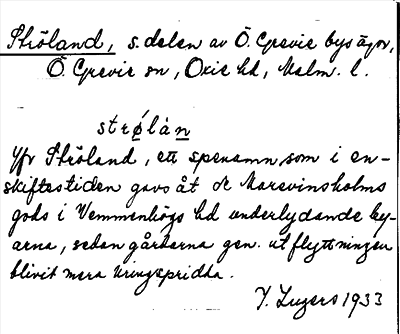 Ströland, s. delen av Ö. Grevie bys ägor,
Ö. Grevie sn, Oxie hd, Malm. l.
strølàn
Jfr Ströland, ett spenamn, som i en-
skiftestiden gavs åt de Marsvinsholms
gods i Vemmenhögs hd underlydande by-
arna, sedan gårdarna gen. utflyttningen
blivit mera kringspridda.
Ingers 1933